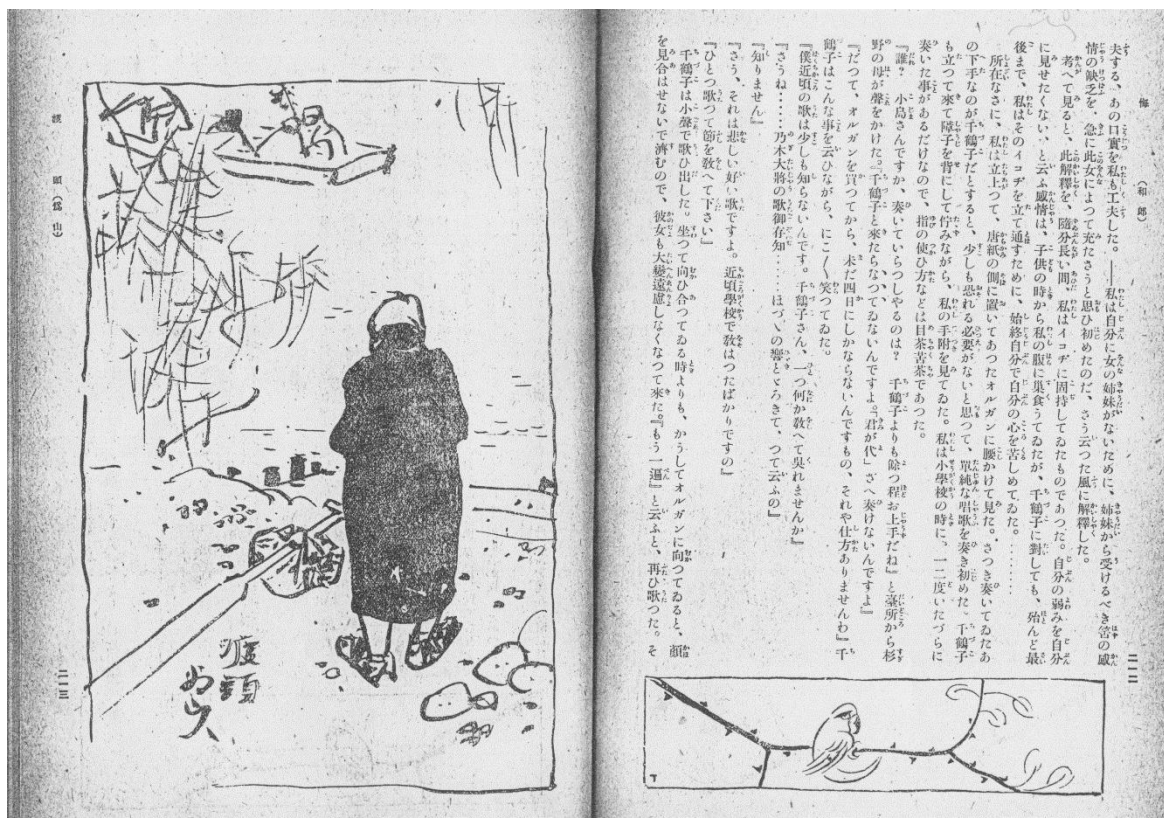 悔
（和郎）
二一二
夫する、あの口實を私も工夫した。――私は自分に女の姉妹がないために、姉妹から受けるべき筈の感
情の缺乏を、急に此女によつて充たさうと思ひ初めたのだ、さう云つた風に解釋した。
考へて見ると、此解釋を、隨分長い間、私はイコヂに固持してゐたものであつた。自分の弱みを自分
に見せたくない、と云ふ感情は、子供の時から私の腹に巣食うてゐたが、千鶴子に對しても、殆んど最
後まで、私はそのイコヂを立て通すために、始終自分で自分の心を苦しめてゐた。‥‥‥
所在なさに、私は立上つて、唐紙の側に置いてあつたオルガンに腰かけて見た。さつき奏いてゐたあ
の下手なのが千鶴子だとすると、少しも恐れる必要がないと思つて、單純な唱歌を奏き初めた。千鶴子
も立つて來て障子を背にして佇みながら、私の手附を見てゐた。私は小學校の時に、一二度いたづらに
奏いた事があるだけなので、指の使ひ方などは目茶苦茶であつた。
『誰？　小島さんですか、奏いていらつしやるのは？　千鶴子よりも餘つ程お上手だね』と臺所から杉
野の母が聲をかけた。『千鶴子と來たらなつてゐないんですよ。「君が代」さへ奏けないんですよ』
『だつて、オルガンを買つてから、未だ四日にしかならないんですもの、それや仕方ありませんわ』千
鶴子はこんな事を云ひながら、にこ〳〵笑つてゐた。
『僕近頃の歌は少しも知らないんです。千鶴子さん、一つ何か敎へて呉れませんか』
『さうね‥‥‥乃木大將の歌御存知‥‥‥ほづゝの響とゞろきて、つて云ふの』
『知りません』
『さう、それは悲しい好い歌ですよ。近頃學校で敎はつたばかりですの』
『ひとつ歌つて節を敎へて下さい』
千鶴子は小聲で歌ひ出した。坐つて向ひ合つてゐる時よりも、かうしてオルガンに向つてゐると、顏
を見合はせないで濟むので、彼女も大變遠慮しなくなつて來た。『もう一遍』と云ふと、再び歌つた。そ
渡頭（爲山）
二一三
渡頭
爲山